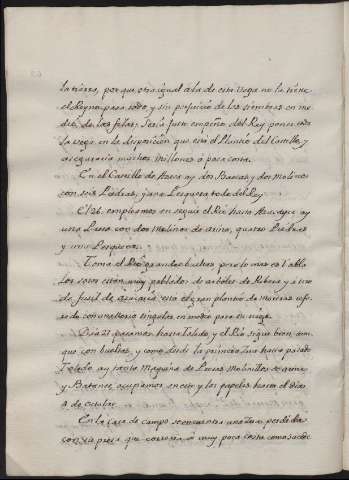 la tierra, por que otra igual a la de esta Vega no la tiene
el Reyno para todo, y sin perjuicio de los siembras en me
dio de las filas. Sería justo empeño del Rey poner toda
la Vega en la disposicion que está el Plantio del Castillo, y
aseguraria muchos millones a poca costa.
En el Castillo de Azeca ay dos Barcas y dos Molinos
con seis Piedras, y una Pesquera todo del Rey.
El 26. empleamos en seguir el Rio hasta ay
una Presa con dos Molinos de arina, quatro Piedras
y una Pesquera.
Toma el Rio grandes bueltas pero lo mas es tabla
los sotos estan muy poblados de arboles de Ribera y a tiro
de fusil de está el gran plantio de moreras
de con una Noria singular en medio para su riego.
Dia 27 pasamos hasta Toledo, y el Rio sigue bien, aun
que con bueltas, y como desde la primera Presa hasta pasado
Toledo ay tanta Maquina de Presas Molinillos de arina
y Batanes, ocupamos en esto y los papeles hasta el dia
9 de octubre.
En la Casa de campo se encuentra una Presa perdida
con via para que correrá a muy poca costa como sacar